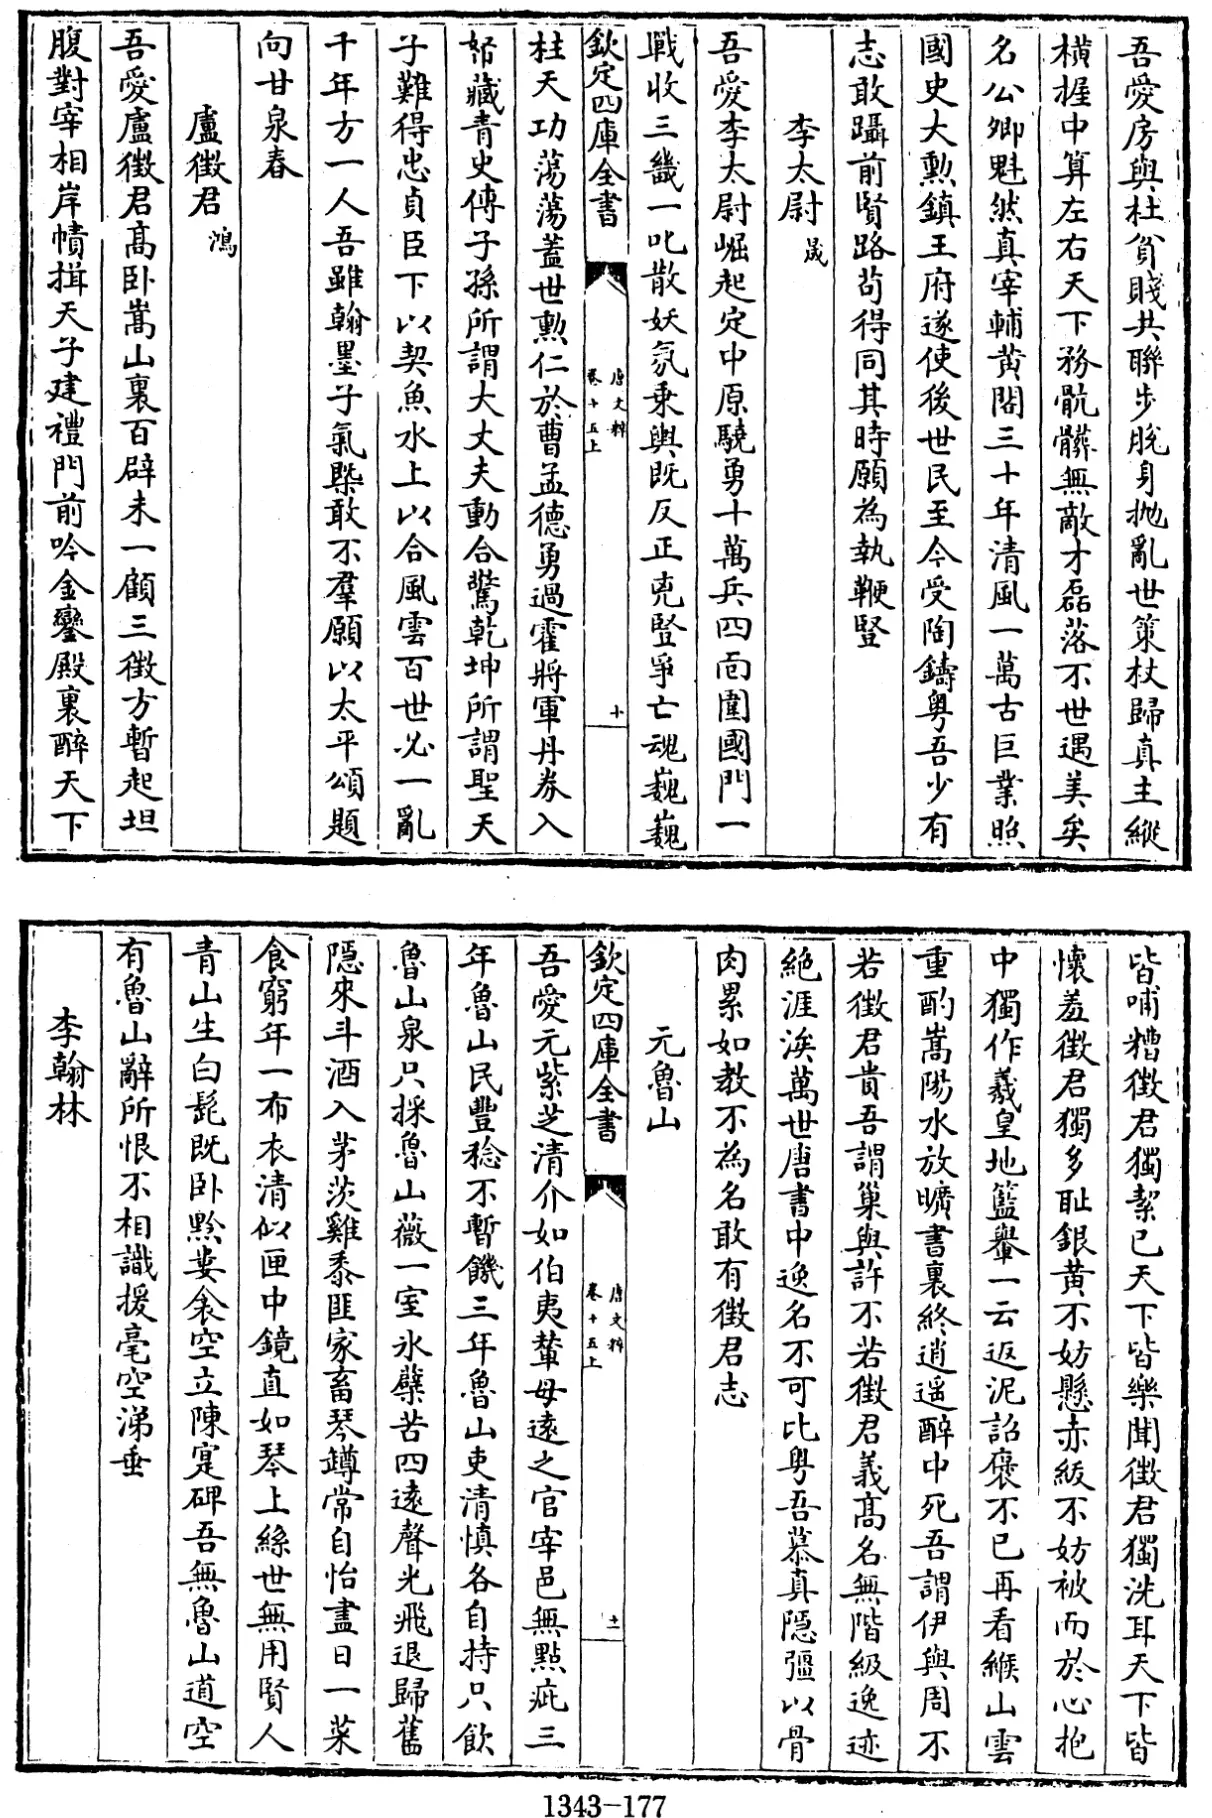 吾愛房與杜貧賤共聯步脫身抛亂世策杖歸真主縱
橫握中算左右天下務骯髒無敵才磊落不世遇美矣
名公卿魁然真宰輔黄閣三十年清風一萬古巨業照
國史大勲鎮王府遂使後世民至今受陶鑄粤吾少有
志敢躡前賢路茍得同其時願為執鞭豎
李太尉晟
吾愛李太尉崛起定中原驍勇十萬兵四面圍國門一
戰收三畿一叱散妖氛乘輿既反正兇豎爭亡魂巍巍
欽定四庫全書
唐文粹
卷十五上
十
柱天功蕩蕩蓋世勲仁於曹孟德勇過霍將軍丹券入
帑藏青史傳子孫所謂大丈夫動合驚乾坤所謂聖天
子難得忠貞臣下以契魚水上以合風雲百世必一亂
千年方一人吾雖翰墨子氣槩敢不羣願以太平頌題
向甘泉春
盧徵君鴻
吾愛盧徵君高卧嵩山裏百辟未一顧三徵方暫起坦
腹對宰相岸幘揖天子建禮門前吟金鑾殿裏醉天下
皆哺糟徵君獨絜已天下皆樂聞徵君獨洗耳天下皆
懷羞徵君獨多耻銀黄不妨懸赤紱不妨被而於心抱
中獨作羲皇地籃轝一云返泥詔褒不已再看緱山雲
重酌嵩陽水放曠書裏終逍遥醉中死吾謂伊與周不
若徵君貴吾謂巢與許不若徵君義高名無階級逸迹
絶涯涘萬世唐書中逸名不可比粤吾慕真隱彊以骨
肉累如教不為名敢有徵君志
元魯山
欽定四庫全書
唐文粹
卷十五上
十一
吾愛元紫芝清介如伯夷輦母遠之官宰邑無點疵三
年魯山民豐稔不暫饑三年魯山吏清慎各自持只飲
魯山泉只採魯山薇一室氷檗苦四遠聲光飛退歸舊
隱來斗酒入茅茨雞黍匪家畜琴罇常自怡盡日一菜
食窮年一布衣清似匣中鏡直如琴上絲世無用賢人
青山生白髭既卧黔婁衾空立陳寔碑吾無魯山道空
有魯山辭所恨不相識援毫空涕垂
李翰林
1343-177